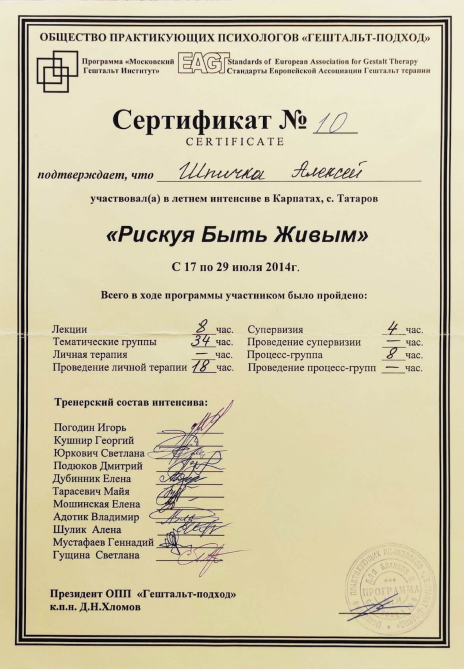 ОБЩЕСТВО ПРАКТИКУЮЩИХ ПСИХОЛОГОВ «ГЕШТАЛЬТ-ПОДХОД»
Программа «Московский Гештальт Институт»
EAGT
Standards of European Association for Gestalt Therapy
Стандарты Европейской Ассоциации Гештальт терапии
Сертификат № 10
CERTIFICATE
подтверждает, что Шпичка Алексей
участвовал(а) в летнем интенсиве в Карпатах, с. Татаров
«Рискуя Быть Живым»
С 17 по 29 июля 2014г.
Всего в ходе программы участником было пройдено:
Лекции 8 час.
Тематические группы 34 час.
Личная терапия — час.
Проведение личной терапии 18 час.
Супервизия 4 час.
Проведение супервизии — час.
Процесс-группа 8 час.
Проведение процесс-групп — час.
Тренерский состав интенсива:
Погодин Игорь
Кушнир Георгий
Юркович Светлана
Подюков Дмитрий
Дубинник Елена
Тарасевич Майя
Мошинская Елена
Адотик Владимир
Шулик Алена
Мустафаев Геннадий
Гущина Светлана
Президент ОПП «Гештальт-подход»
к.п.н. Д.Н.Хломов
ПРОГРАММА